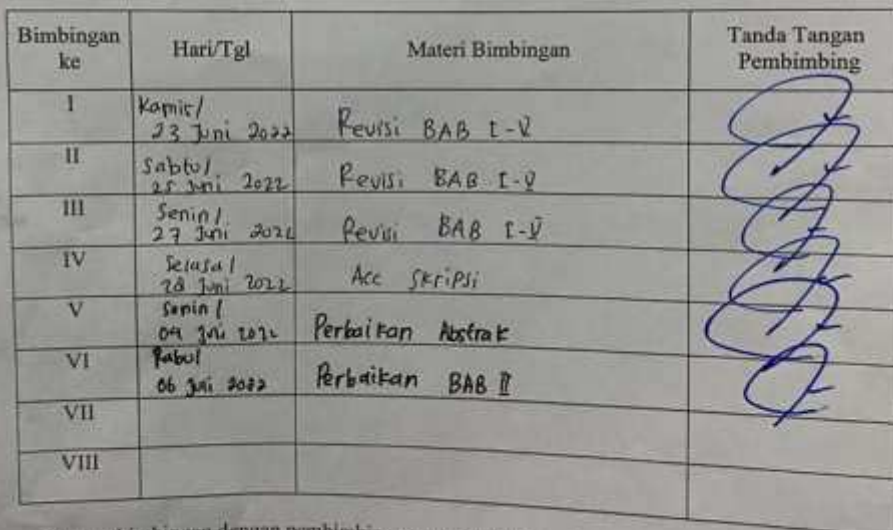 Bimbingan ke Hari/Tgl Materi Bimbingan Tanda Tangan Pembimbing
I Kamis/ 23 Juni 2022 Revisi BAB I-V
II Sabtu/ 25 Juni 2022 Revisi BAB I-V
III Senin/ 27 Juni 2022 Revisi BAB I-V
IV Selasa/ 28 Juni 2022 Acc Skripsi
V Senin/ 04 Juli 2022 Perbaikan Abstrak
VI Rabu/ 06 Juli 2022 Perbaikan BAB II
VII
VIII
dengan